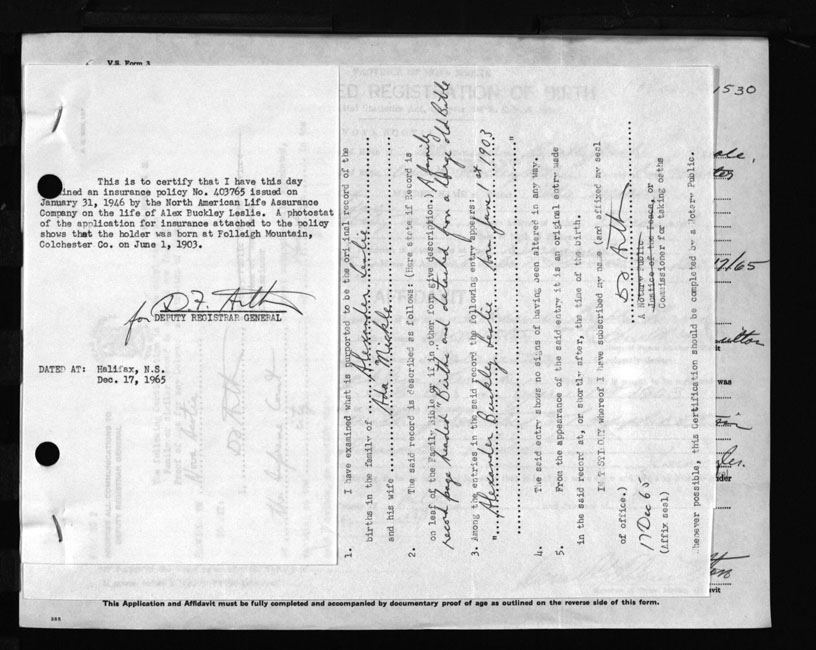 V.S. Form 3
This is to certify that I have this day
ined an insurance policy No. 403765 issued on
January 31, 1946 by the North American Life Assurance
Company on the life of Alex Buckley Leslie. A photostat
of the application for insurance attached to the policy
shows that the holder was born at Folleigh Mountain,
Colchester Co. on June 1, 1903.
for D.F. Arth
DEPUTY REGISTRAR GENERAL
DATED AT: Halifax, N.S.
Dec. 17, 1965
1. I have examined what is purported to be the original record of the
births in the family of Alexander Leslie
and his wife Ada
2. The said record is described as follows: (Here state if Record is
on leaf of the Family Bible or if in other form give description.) A family
record page headed "Births" and detached from a large old Bible
3. Among the entries in the said record the following entry appears:
"Alexander Buckley Leslie born June 1st 1903
"
4. The said entry shows no signs of having been altered in any way.
5. From the appearance of the said entry it is an original entry made
in the said record at, or shortly after, the time of the birth.
IN TESTIMONY whereof I have subscribed my name (and affixed my seal
of office.)
17 Dec 65
A Notary Public
Justice of the Peace, or
Commissioner for taking oaths
(Affix seal)
Whenever possible, this Certification should be completed by a Notary Public.
1530
17/65
was
This Application and Affidavit must be fully completed and accompanied by documentary proof of age as outlined on the reverse side of this form.